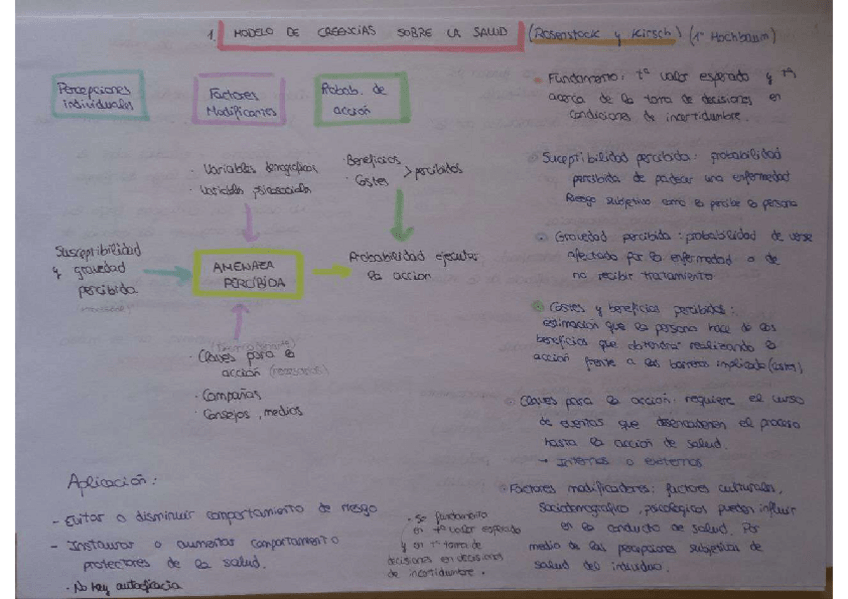 1. MODELO DE CREENCIAS SOBRE LA SALUD (Rosenstock y Kirsch) (1º Hochbaum)
Percepciones
individuales
Factores
Modificantes
Probab. de
acción
· Variables demográficas
· Variables psicosociales
· Beneficios
· Costes
> percibidos
Susceptibilidad
y gravedad
percibida
AMENAZA
PERCIBIDA
Probabilidad ejecutar
la acción
· Claves para la
acción (necesarias)
· Campañas
· Consejos, medios
Fundamento: tª valor esperado y tª
acerca de la toma de decisiones en
condiciones de incertidumbre.
Suceptibilidad percibida: probabilidad
percibida de padecer una enfermedad
Riesgo subjetivo como lo percibe la persona
Gravedad percibida: probabilidad de verse
afectado por la enfermedad o de
no recibir tratamiento
Costes y beneficios percibidos:
estimación que la persona hace de los
beneficios que obtendría realizando la
acción frente a las barreras implicadas (costes)
Claves para la acción: requiere el curso
de eventos que desencadenen el proceso
hasta la acción de salud.
→ Internos o externos
Factores modificadores: factores culturales,
sociodemográfico, psicológicos pueden influir
en la conducta de salud. Por
medio de las percepciones subjetivas de
salud del individuo.
Aplicación:
- Evitar o disminuir comportamiento de riesgo
- Instaurar o aumentar comportamiento
protectores de la salud.
· No hay autoeficacia
· Se fundamenta
en tª valor esperado
y en tª toma de
decisiones en decisiones
de incertidumbre.